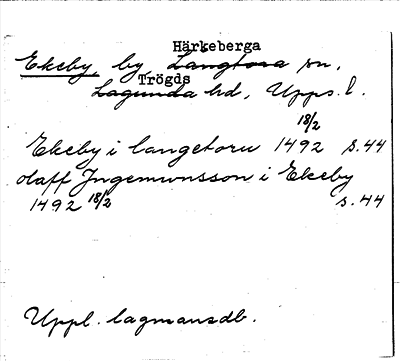 Härkeberga
Ekeby, by Langtora sn,
Trögds
Lagunda hd, Upps. l.
Ekeby i langetoru 1492 18/2 s. 44
olaff Jngemunsson i Ekeby
1492 18/2 s. 44
Uppl. lagmansdb.